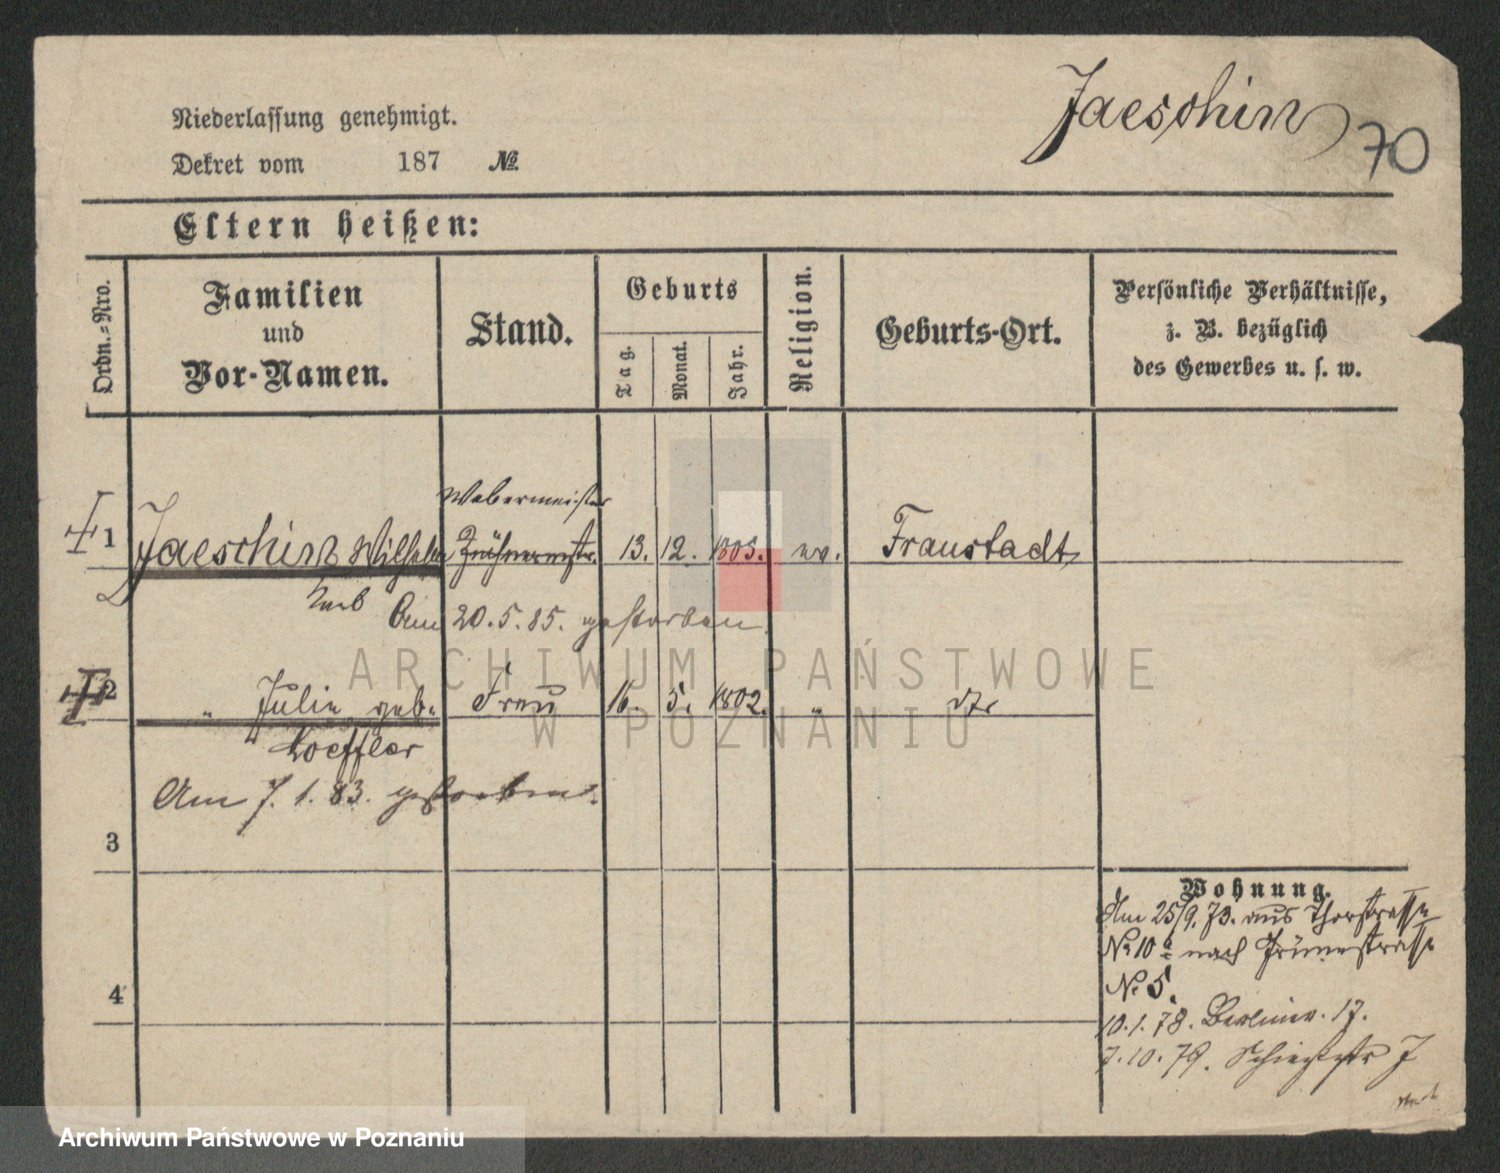 Jaeschin
70
Niederlassung genehmigt.
Dekret vom 187 №
Eltern heißen:
Ordn.=Nro.
Familien
und
Vor-Namen.
Stand.
Geburts
Tag.
Monat.
Jahr.
Religion.
Geburts-Ort.
Persönliche Verhältnisse,
z. B. bezüglich
des Gewerbes u. s. w.
Webermeister
1 Jaeschin Wilhelm 13. 12. 1805. ev. Fraustadt
Am 20.5.85. gestorben.
2 " Julie geb. Frau 16. 5. 1802. " dto
Loeffler
Am 7.1.83. gestorben.
3
4
Wohnung.
Am 25/9.73. aus Thorstrasse
No 10a nach Grünestrasse
No 5.
10.1.78. Berlinerstr. 17.
7.10.79. Schießstr 7
ARCHIWUM PAŃSTWOWE
W POZNANIU
Archiwum Państwowe w Poznaniu